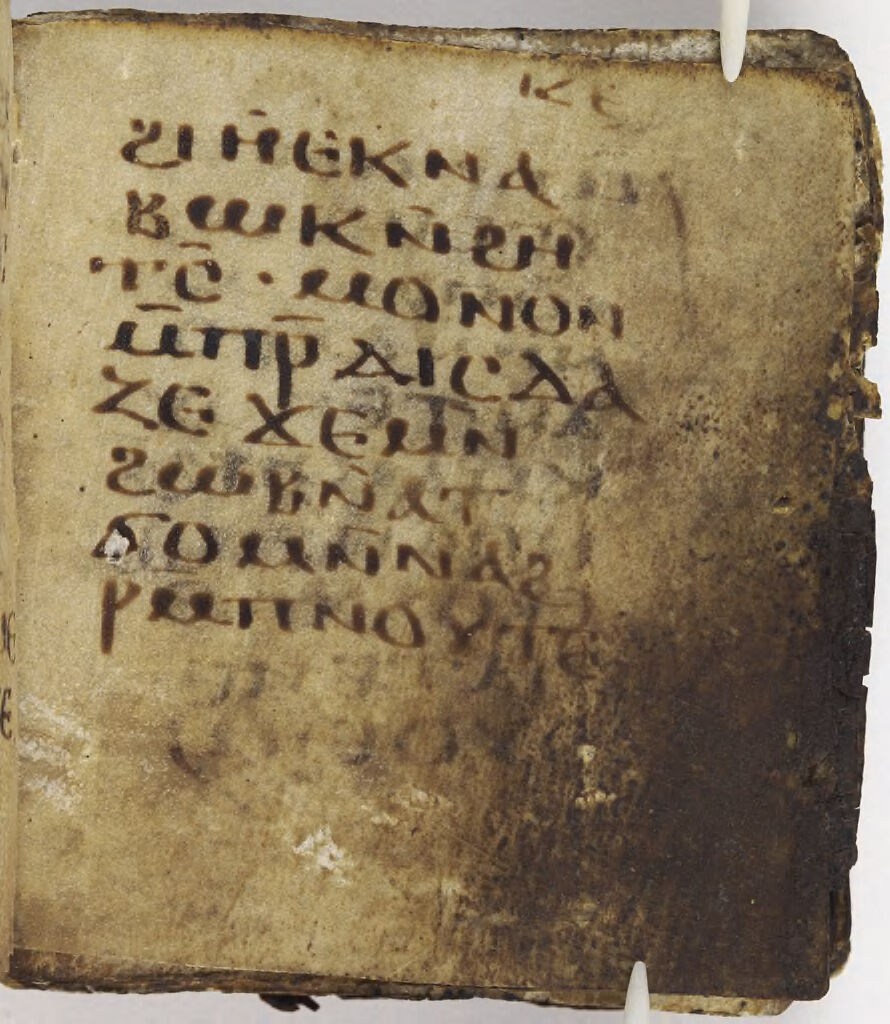 ⲕⲉ
ϩⲓⲏ ⲉⲕⲛⲁ
ⲃⲱⲕ ⲛ̄ϩⲏ
ⲧⲥ̄ · ⲙⲟⲛⲟⲛ
ⲙ̄ⲡⲣ̄ⲇⲓⲥⲇⲁ
ⲍⲉ ϫⲉⲙⲛ
ϩⲱⲃ ⲛ̄ⲁⲧ
ϭⲟⲙ ⲛ̄ⲛⲁϩ
ⲣⲙⲡⲛⲟⲩⲧⲉ